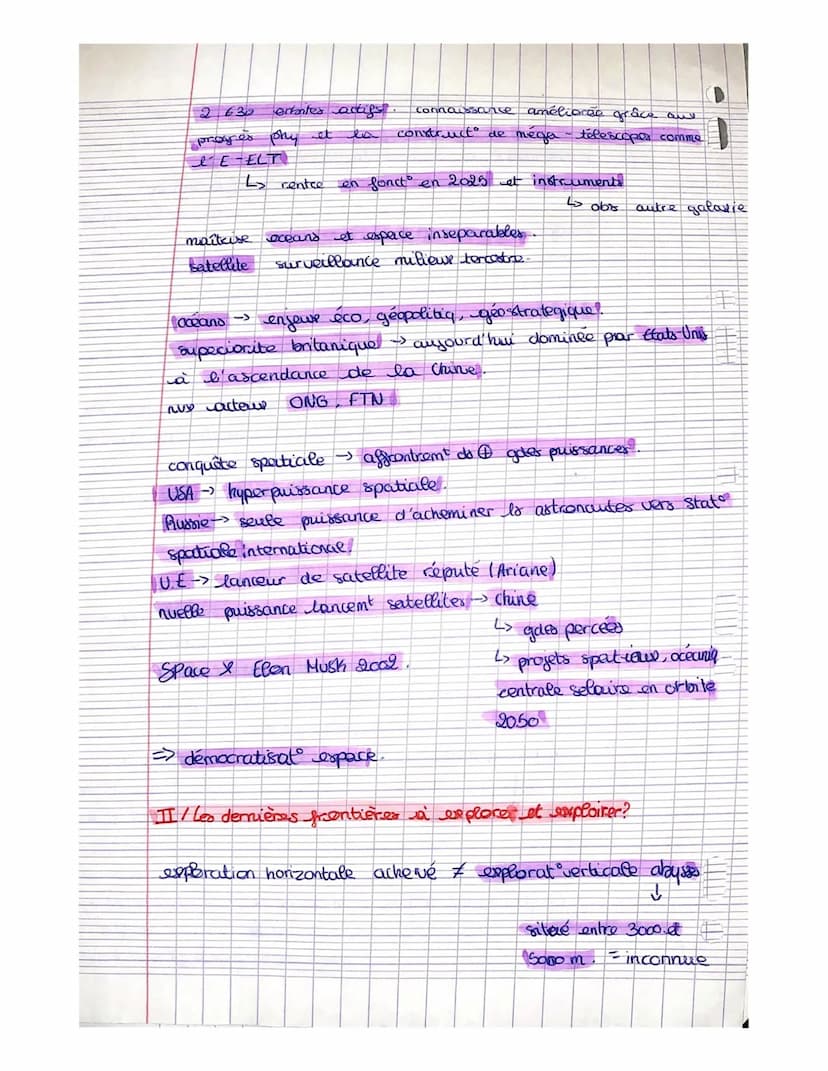 2 630 orbites actifs. connaissance améliorée grâce aux
progrès phy et la construct° de méga-télescopes comme
l'E-ELT
↳ rentre en fonct° en 2025 et instruments
↳ obs autre galaxie
maîtrise océans et espace inséparables.
satellite surveillance milieux terrestre.
océans -> enjeux éco, géopolitiq, géostrategique.
superiorite britanique -> aujourd'hui dominée par Etats-Unis
à l'ascendance de la Chine.
nvx acteurs ONG, FTN
conquête spatiale -> affrontemt ds ⊕ gdes puissances.
USA -> hyperpuissance spatiale.
Russie -> seule puissance d'acheminer ls astronautes vers stat°
spatiale international.
U.E -> lanceur de satellite réputé (Ariane)
nvelle puissance lancemt satellites -> Chine
↳ gdes percées
Space X Elon Musk 2002.
↳ projets spatiaux, océaniq
centrale solaire en orbite
2050
=> démocratisat° espace.
II/ Les dernières frontières à explorer et exploiter?
exploration horizontale achevé ≠ explorat° verticale abysses
↓
situé entre 3000 et
5000 m. = inconnue